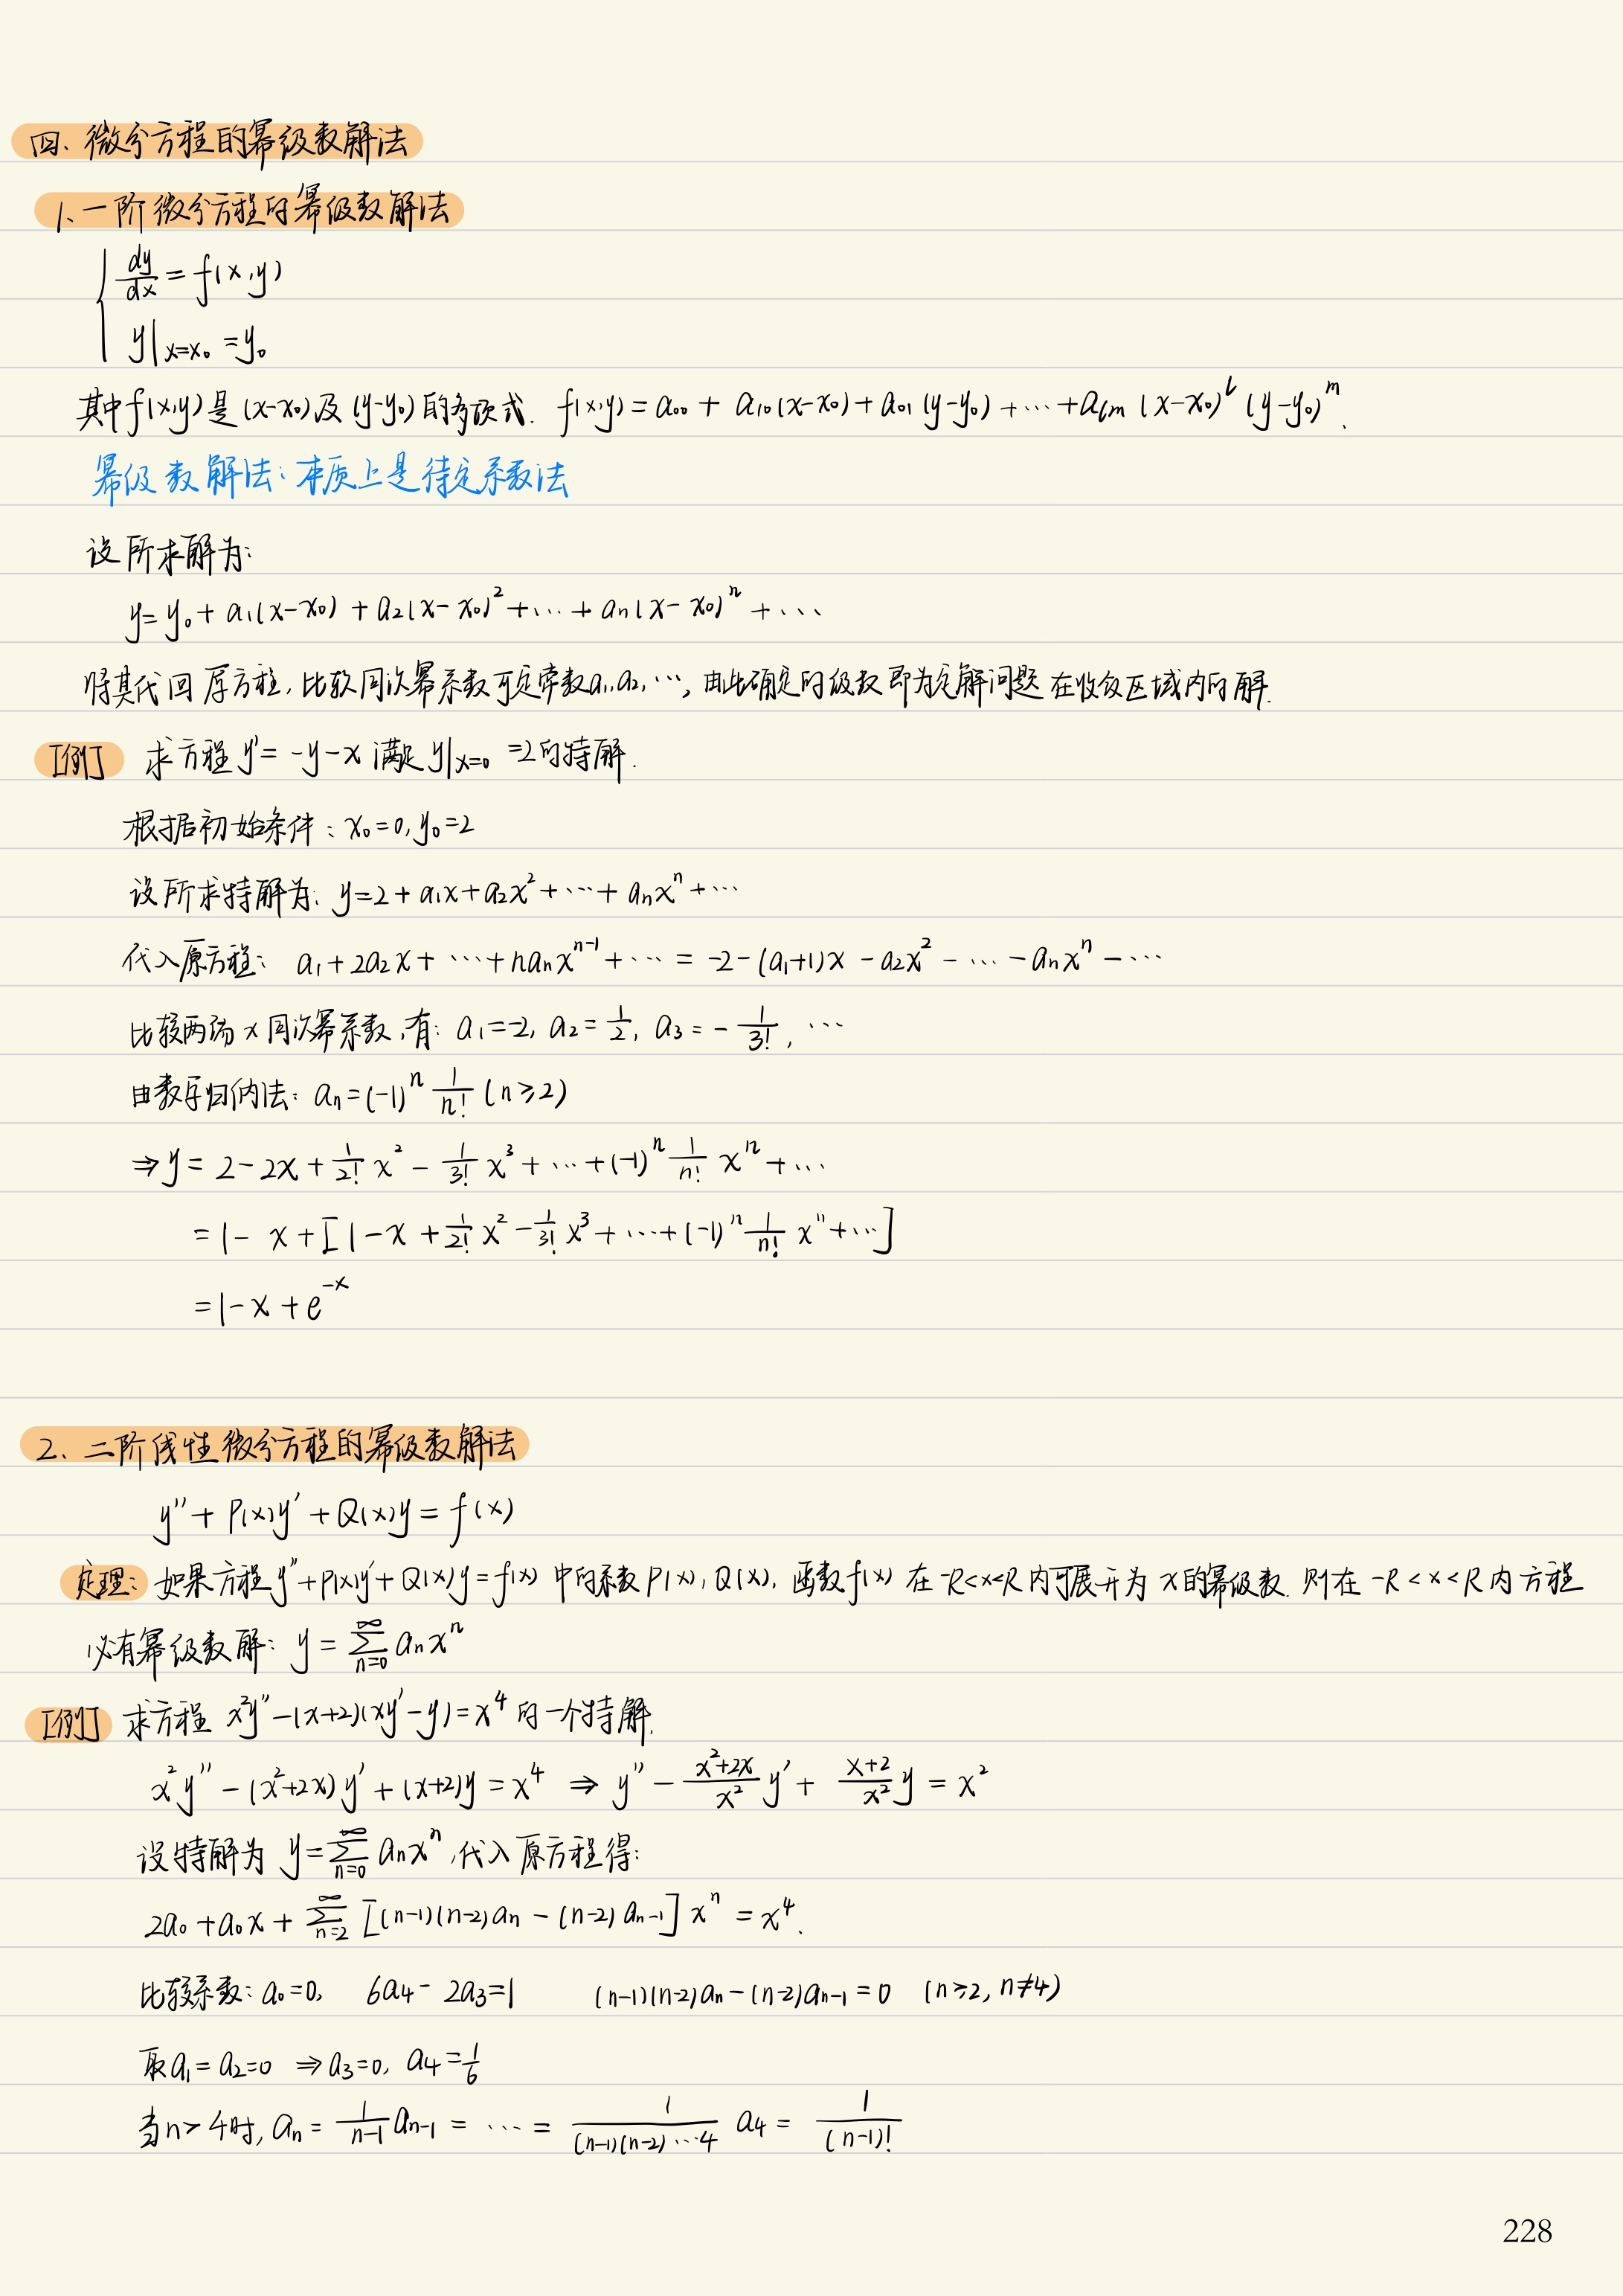 四、微分方程的幂级数解法
1、一阶微分方程的幂级数解法
{ dy/dx = f(x,y)
y|x=x₀ = y₀
其中f(x,y)是(x-x₀)及(y-y₀)的多项式. f(x,y) = a₀₀ + a₁₀(x-x₀) + a₀₁(y-y₀) + ⋯ + aₗₘ(x-x₀)ˡ(y-y₀)ᵐ.
幂级数解法: 本质上是待定系数法
设所求解为:
y = y₀ + a₁(x-x₀) + a₂(x-x₀)² + ⋯ + aₙ(x-x₀)ⁿ + ⋯
将其代回原方程, 比较同次幂系数可定常数a₁, a₂, ⋯, 由此确定的级数即为定解问题在收敛区域内的解.
[例] 求方程 y' = -y-x 满足 y|x=0 = 2的特解.
根据初始条件: x₀=0, y₀=2
设所求特解为: y = 2 + a₁x + a₂x² + ⋯ + aₙxⁿ + ⋯
代入原方程: a₁ + 2a₂x + ⋯ + naₙxⁿ⁻¹ + ⋯ = -2 - (a₁+1)x - a₂x² - ⋯ - aₙxⁿ - ⋯
比较两端x同次幂系数, 有: a₁=-2, a₂=1/2, a₃=-1/3!, ⋯
由数学归纳法: aₙ = (-1)ⁿ 1/n! (n≥2)
⇒ y = 2 - 2x + 1/2! x² - 1/3! x³ + ⋯ + (-1)ⁿ 1/n! xⁿ + ⋯
= 1 - x + [1 - x + 1/2! x² - 1/3! x³ + ⋯ + (-1)ⁿ 1/n! xⁿ + ⋯]
= 1 - x + e⁻ˣ
2、二阶线性微分方程的幂级数解法
y'' + P(x)y' + Q(x)y = f(x)
定理: 如果方程 y'' + P(x)y' + Q(x)y = f(x) 中的系数P(x), Q(x), 函数f(x) 在 -R<x<R内可展开为 x的幂级数. 则在 -R<x<R内方程
必有幂级数解: y = ∑n=0^∞ aₙxⁿ
[例] 求方程 x²y'' - (x+2)(xy'-y) = x⁴ 的一个特解.
x²y'' - (x²+2x)y' + (x+2)y = x⁴ ⇒ y'' - (x²+2x)/x² y' + (x+2)/x² y = x²
设特解为 y = ∑n=0^∞ aₙxⁿ, 代入原方程得:
2a₀ + a₀x + ∑n=2^∞ [(n-1)(n-2)aₙ - (n-2)aₙ₋₁]xⁿ = x⁴.
比较系数: a₀=0, 6a₄ - 2a₃ = 1 (n-1)(n-2)aₙ - (n-2)aₙ₋₁ = 0 (n≥2, n≠4)
取a₁=a₂=0 ⇒ a₃=0, a₄=1/6
当n>4时, aₙ = 1/(n-1) aₙ₋₁ = ⋯ = 1/((n-1)(n-2)⋯4) a₄ = 1/(n-1)!
228